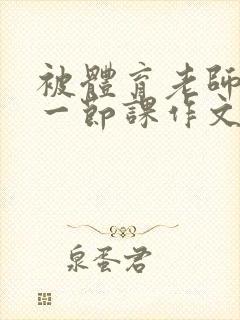 被體育老師
一節課作文
泉蛋君